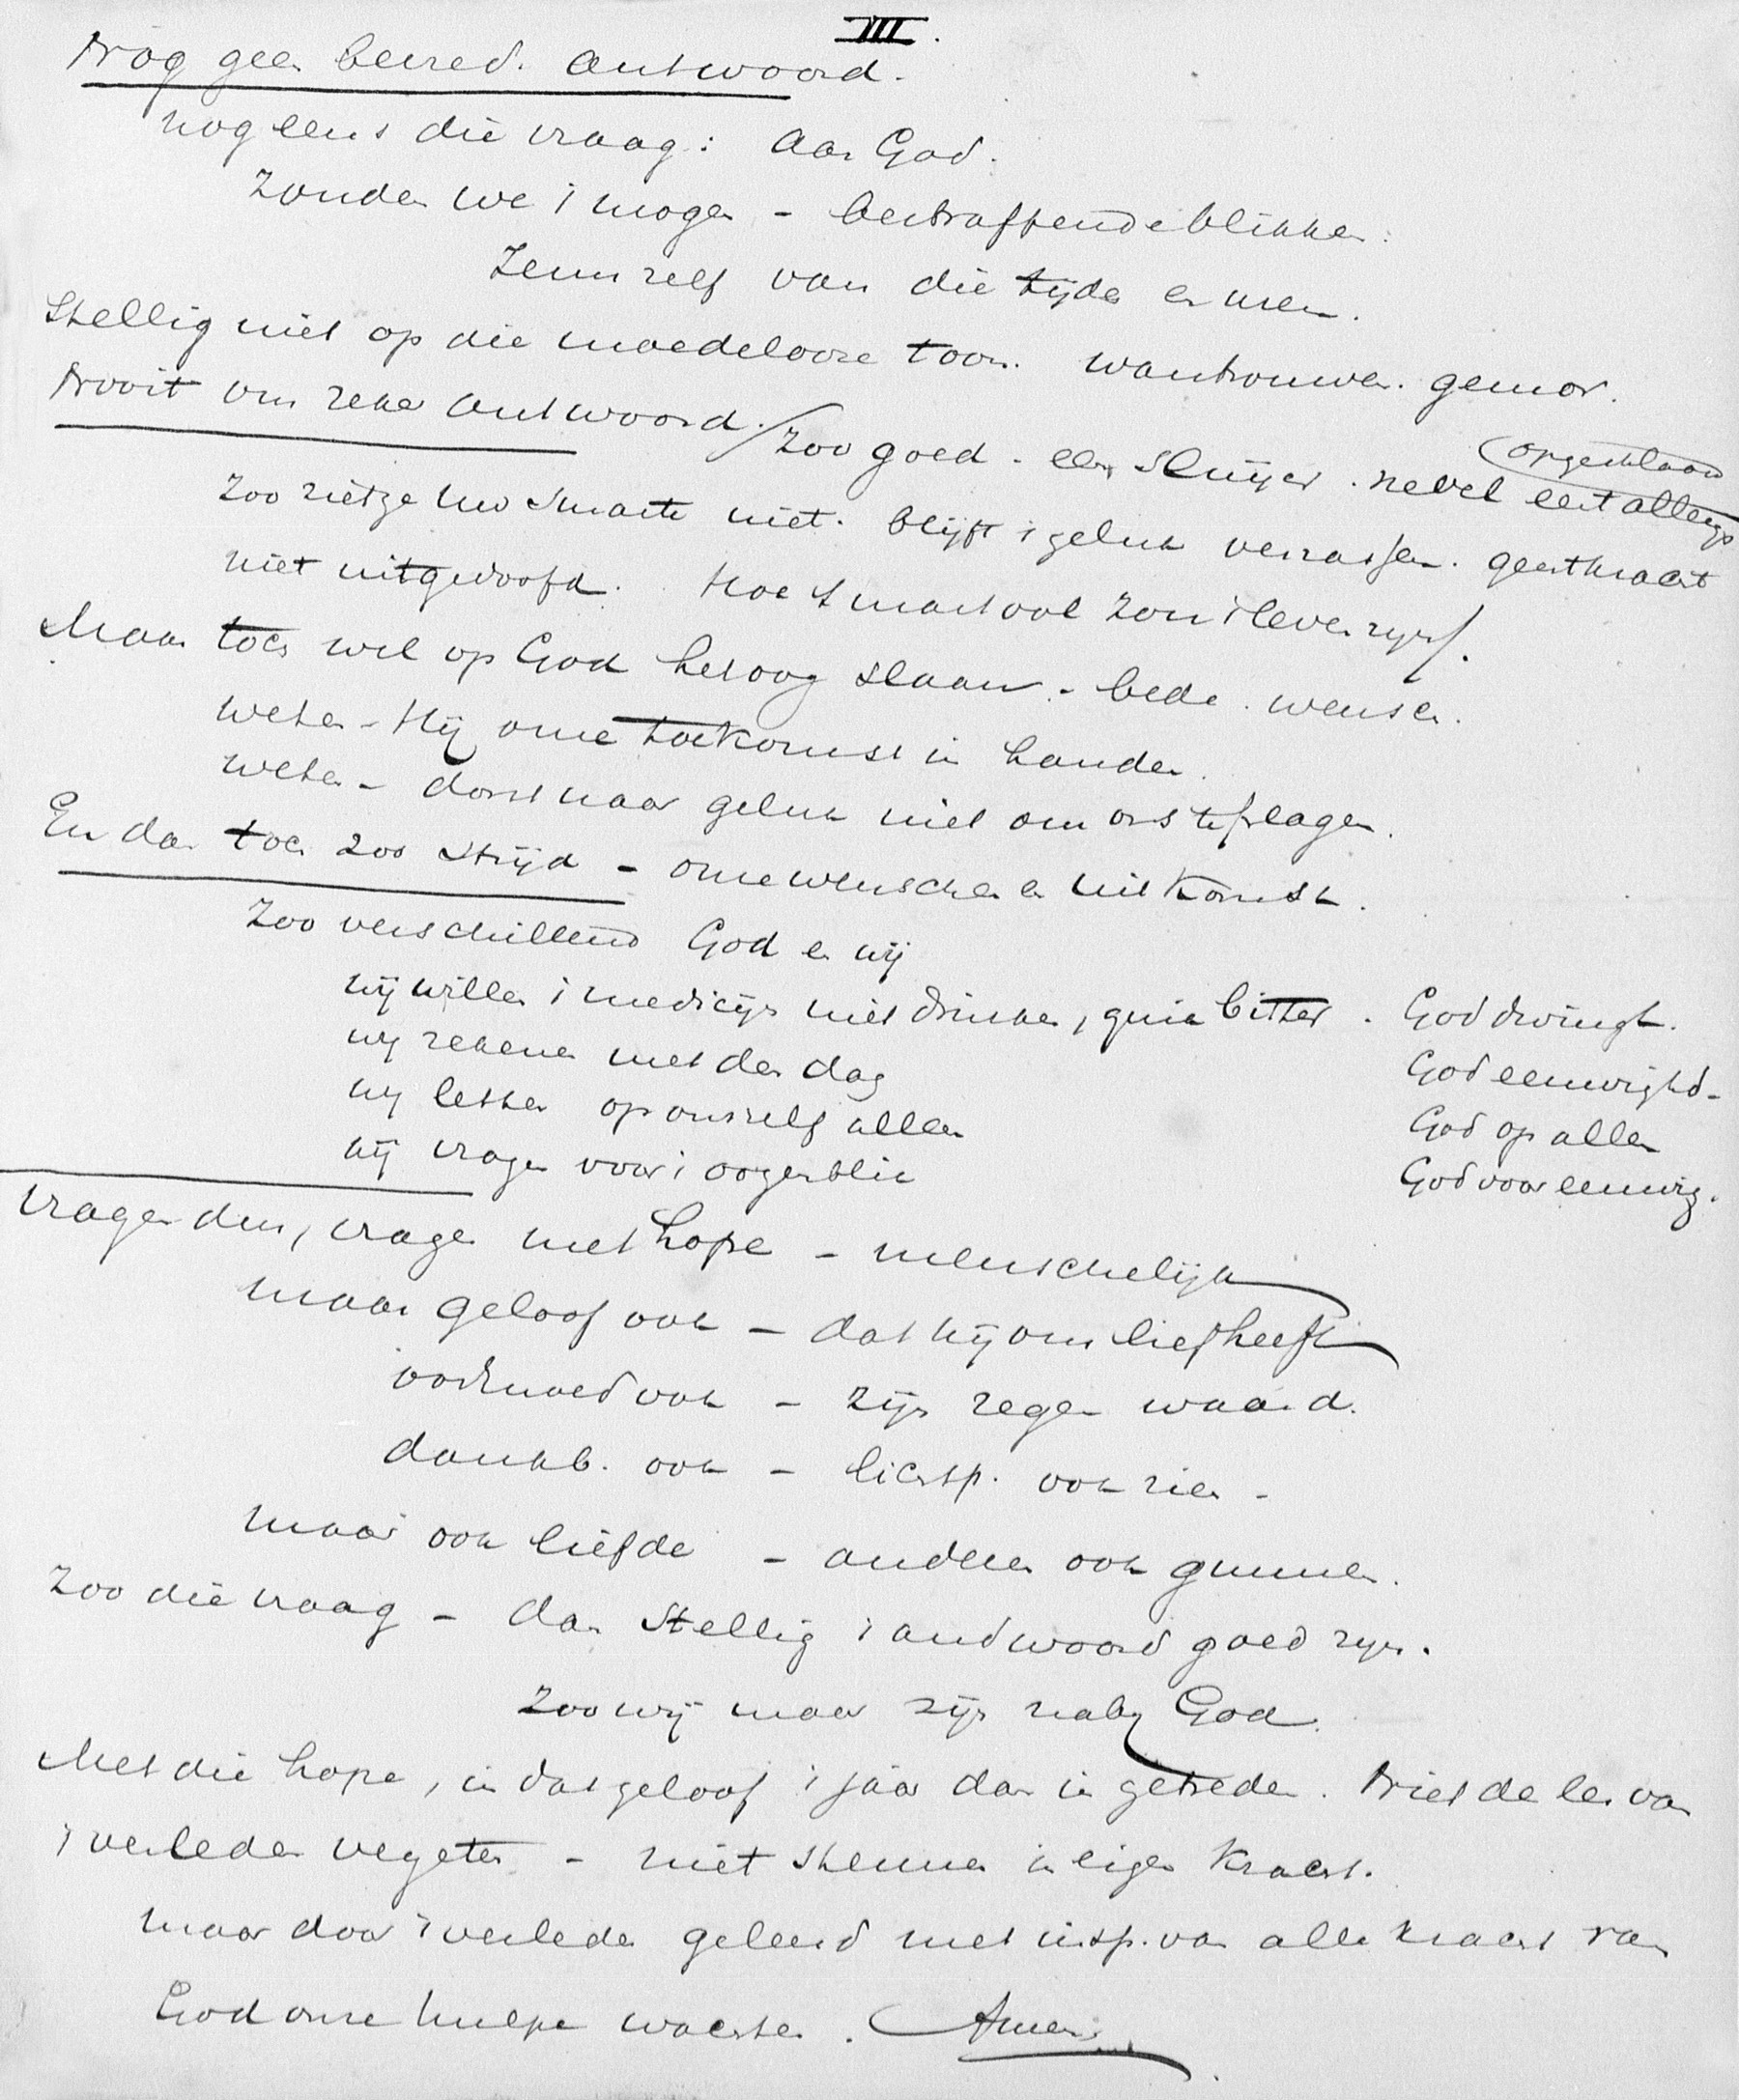 III.
Nog geen bevred. antwoord.
Nog eens die vraag: aan God.
Zonden we 't mogen - bestraffende blikken.
Zeun zelf van die tijden en uren.
Stellig niet op die moedelooze toon. wantrouwen. gemor.
Nooit om zeker antwoord. / Zoo goed - een sluijer. nevel eerst allengs
opgeslaan
Zoo zietge uw smarte niet. blijft 't geluk verrassen. geestkracht
niet uitgedoofd. Hoe smartvol zou 't leven zijn.
Maar toch wel op God het oog slaan. - bede. wensen.
weten - Hij onze toekomst in handen.
weten - dorst naar geluk niet om ons te plagen.
En dan toch zoo strijd - onze wenschen en uitkomst.
Zoo verschillend God en wij
wij willen 't medicijn niet drinken, quia bitter. God dwingt.
wij rekenen met den dag God eeuwighd.
wij letten op onszelf alleen God op allen
wij vragen voor 't oogenblik God voor eeuwig.
Vragen dus, vragen met hope - menschelijk
maar geloof ook - dat hij ons liefheeft
ootmoed ook - zijn zegen waard.
dankb. ook - lichtp. ook zien -
maar ook liefde - anderen ook gunnen.
Zoo die vraag - dan stellig 't andwoord goed zijn.
Zoo wij maar zijn nabij God.
Met die hope, in dat geloof 't jaar dan in getreden. Niet de les van
't verleden vergeten - niet steunen in eigen kracht.
maar door 't verleden geleerd met insp. van alle kracht van
God onze hulpe wachten. Amen.